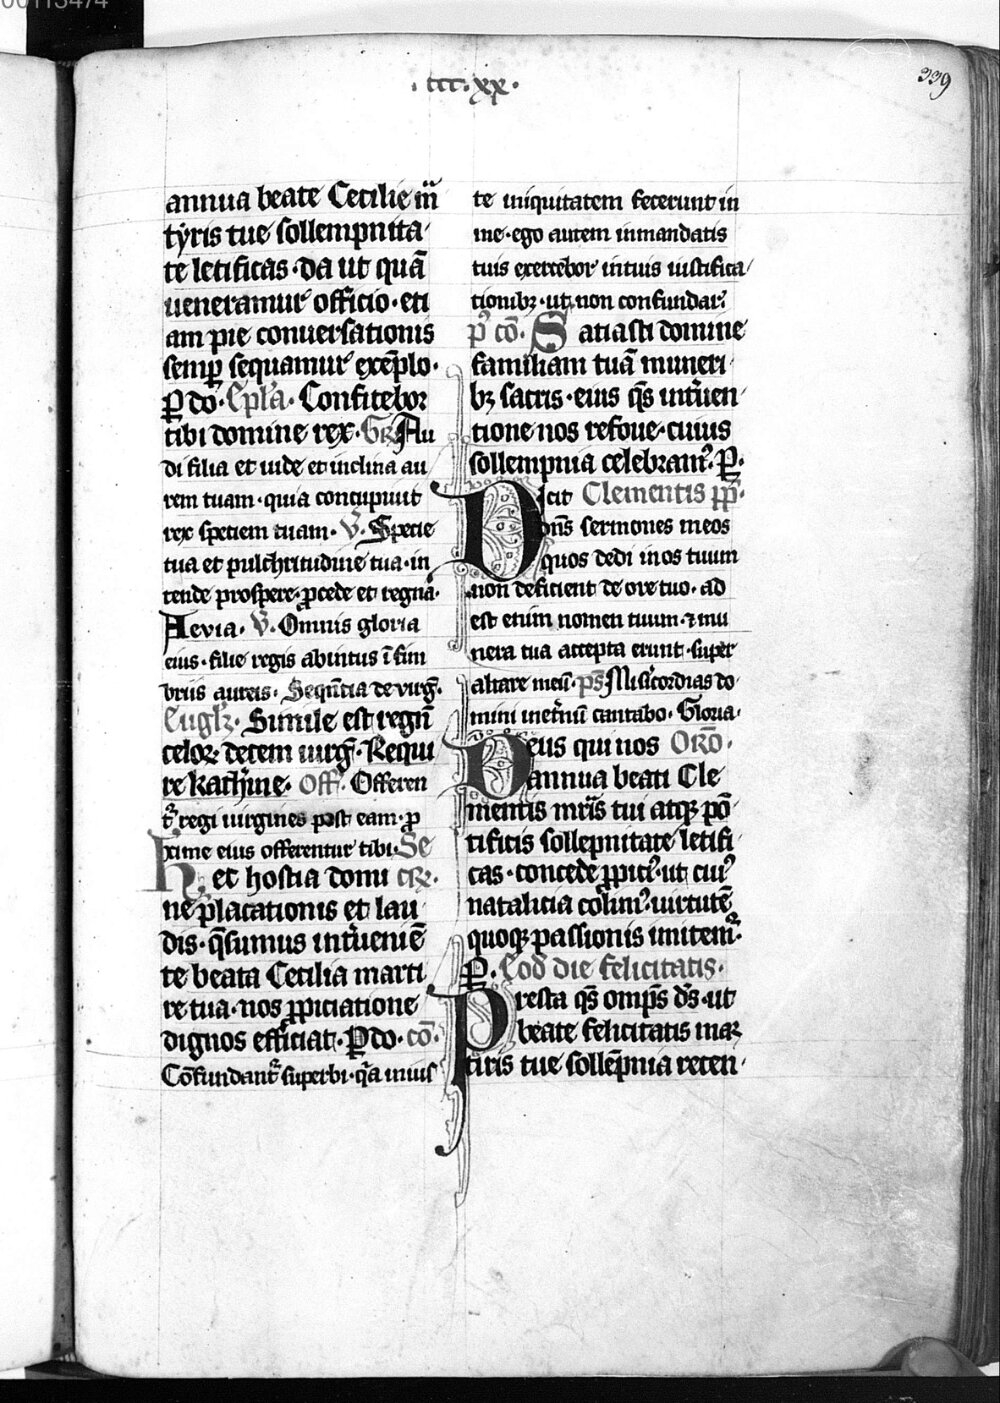 00113474
·ccc·xx·
339
annua beate Cecilie m̄r
tyris tue sollempnita
te letificas·da ut quā
ueneramur officio·eti
am pie conuersationis
semꝑ sequamur exēplo·
Ꝑ do·Ep̄la·Confitebor
tibi domine rex·GR̄ Au
di filia et uide et inclina au
rem tuam·quia concupiuit
rex speciem tuam·V̄·Specie
tua et pulchritudine tua·in
tende prospere·ꝓcede et regna·
Aeuia·V̄·Omnis gloria
eius·filie regis abintus ī fim
briis aureis·Sequn̄tia de uirḡ·
Eugl̄·Simile est regnū
celoꝝ decem uirḡ·Requi
re kath̓ine·Off̄·Offeren
t᷑ regi uirgines post eam·ꝓ
xime eius offerentur tibi·Se
H, et hostia domi cr̄e·
ne placationis et lau
dis·q̄sumus int̓ueniē
te beata Cecilia marti
re tua·nos ꝓpiciatione
dignos efficiat·Ꝑ do·cō·
Cōfundant᷑ superbi·q̓a inius
te iniquitatem fecerunt in
me·ego autem inmandatis
tuis exercebor intuis iustifica
tionibꝫ·ut non confundar᷑
p̓ cō·Satiasti domine
familiam tuā muneri
bꝫ sacris·eius q̄s int̓uen
tione nos refoue·cuius
sollempnia celebram᷒·Ꝑ·
Dicit Clementis p̄p̄·
dn̄s sermones meos
quos dedi inos tuum
non deficient de ore tuo·ad
est enim nomen tuum·⁊ mu
nera tua accepta erunt·super
altare meū·p̄s Mis̓icordias do
mini inet̓nū cantabo·Gloria·
Deus qui nos Orō·
annua beati Cle
mentis mr̄is tui atqꝫ pō
tificis sollepnitate letifi
cas·concede ꝓpici᷒·ut cui᷒
natalicia colim᷒·uirtutē
quoqꝫ passionis imitem᷑·
Ꝑ·Eod̄ die felicitatis·
Presta q̄s omp̄s d̄s·ut
beate felicitatis mar
tiris tue sollēpnia recen